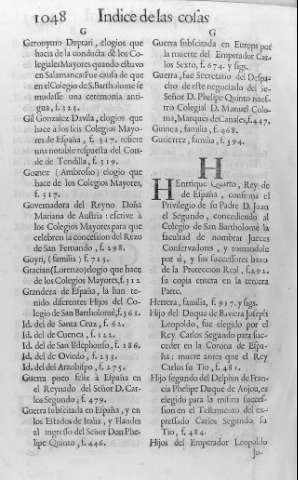 1048 Indice de las cosas
G
Geronymo Deptari, elogios que
hacia de la conducta de los Co-
legiales Mayores quando estuvo
en Salamanca: fue causa de que
en el Colegio de S. Bartholome se
mudasse una ceremonia anti-
gua, f. 323.
Gil Gonzalez Davila, elogios que
hace à los seis Colegios Mayo-
res de España, f. 317. refiere
una notable respuesta del Con-
de de Tendilla, f. 319.
Gomez (Ambrosio) elogio que
hace de los Colegios Mayores,
f. 317.
Governadora del Reyno Doña
Mariana de Austria: escrive à
los Colegios Mayores para que
celebren la concession del Rezo
de San Fernando, f. 298.
Goyri, (familia) f. 723.
Gracian (Lorenzo) elogio que hace
de los Colegios Mayores, f. 312
Grandeza de España, la han te-
nido diferentes Hijos del Co-
legio de San Bartholomè, f. 561.
Id. del de Santa Cruz, f. 62.
Id. del de Cuenca, f. 122.
Id. del de San Ildephonso, f. 186.
Id. del de Oviedo, f. 235.
Id. del del Arzobispo, f. 275.
Guerra poco feliz à España en
el Reynado del Señor D. Car-
los Segundo, f. 479.
Guerra suscitada en España, y en
los Estados de Italia, y Flandes
al ingresso del Señor Don Phe-
lipe Quinto, f. 446.
G
Guerra suscitada en Europa por
la muerte del Emperador Car-
los Sexto, f. 674. y sigs.
Guerra, fue Secretario del Despa-
cho de este negociado del Se-
ñor D. Phelipe Quinto nues-
tro Colegial D. Manuel Colo-
ma, Marquès de Canales, f. 447.
Guinea, familia, f. 468.
Gutierrez, familia, f. 394.
H
Henrique Quarto, Rey de
de España, confirma el
Privilegio de su Padre D. Juan
el Segundo, concediendo al
Colegio de San Bartholomè la
facultad de nombrar Jueces
Conservadores, y tomandole
por sì, y sus successores baxo
de la Proteccion Real, f. 292.
sa copia entera en la tercera
Parte.
Herrera, familia, f. 917. y sigs.
Hijo del Duque de Baviera Joseph
Leopoldo, fue elegido por el
Rey Carlos Segundo para suc-
ceder en la Corona de Espa-
ña; muere antes que el Rey
Carlos su Tio, f. 481.
Hijo segundo del Delphin de Fran-
cia Phelipe Duque de Anjou, es
elegido para la misma succes-
sion en el Testamento del ex-
pressado Carlos Segundo su
Tio, f. 484.
Hijos del Emperador Leopoldo
Jo-